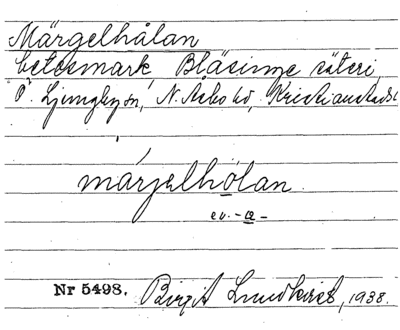 Märgelhålan
betesmark Bläsinge säteri,
Ö. Ljungby sn, N. Åsbo hd, Kristianstads l
márjelhólan
ev. -ω-
Nr 5498. Birgit Lundkvist, 1938.